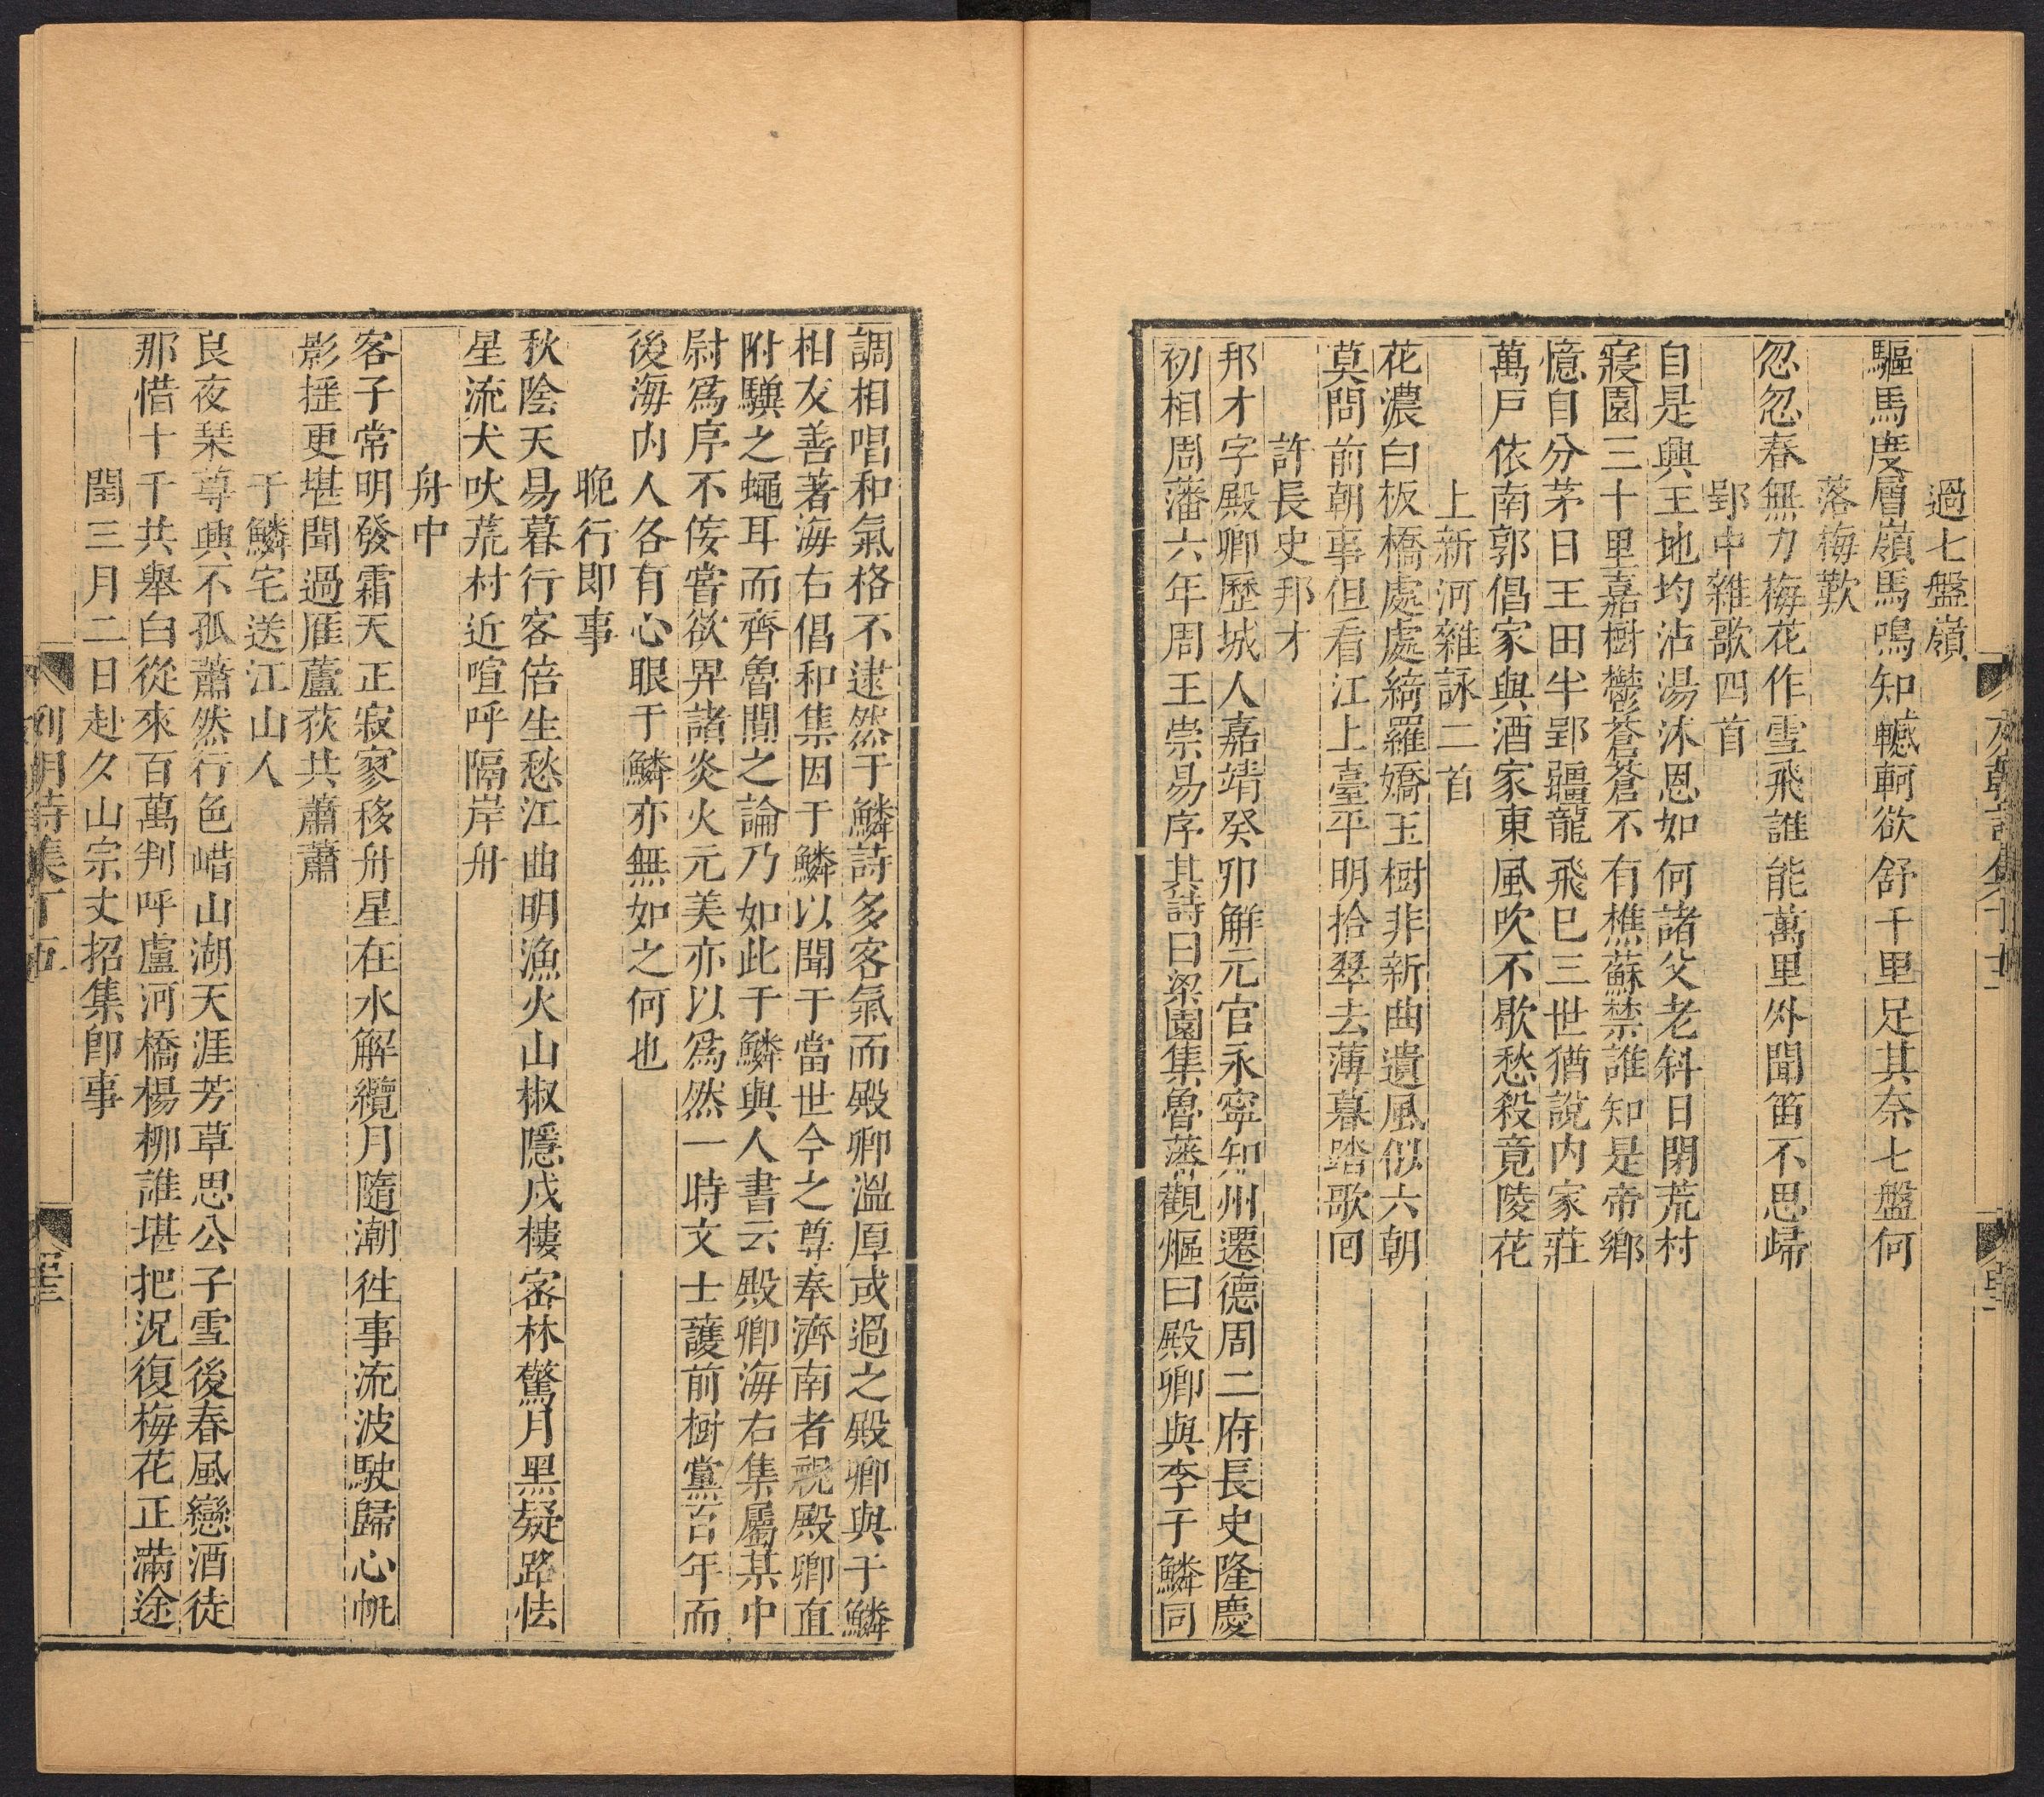 過七盤嶺
驅馬度層嶺馬鳴知轗軻欲舒千里足其奈七盤何
落梅歎
忽忽春無力梅花作雪飛誰能萬里外聞笛不思歸
郢中雜歌四首
自是興王地均沾湯沐恩如何諸父老斜日閉荒村
寢園三十里嘉樹鬱蒼蒼不有樵蘇禁誰知是帝鄉
憶自分茅日王田半郢疆龍飛巳三世猶說内家莊
萬戸依南郭倡家與酒家東風吹不歇愁殺竟陵花
上新河雜詠二首
花濃白板橋處處綺羅嬌玉樹非新曲遺風似六朝
莫問前朝事但看江上臺平明拾翠去薄暮踏歌囘
許長史邦才
邦才字殿卿歷城人嘉靖癸卯解元官永寧知州遷德周二府長史隆慶
初相周藩六年周王崇易序其詩曰梁園集魯藩觀㷅曰殿卿與李于鱗同
調相唱和氣格不逮然于鱗詩多客氣而殿卿溫厚或過之殿卿與于鱗
相友善著海右倡和集因于鱗以聞于當世今之尊奉濟南者視殿卿直
附驥之蠅耳而齊魯間之論乃如此于鱗與人書云殿卿海右集屬某中
尉爲序不佞嘗欲畀諸炎火元美亦以爲然一時文士護前樹黨百年而
後海内人各有心眼于鱗亦無如之何也
晚行即事
秋陰天易暮行客倍生愁江曲明漁火山椒隱戍樓密林驚月黑疑路怯
星流犬吠荒村近喧呼隔岸舟
舟中
客子常明發霜天正寂寥移舟星在水解纜月隨潮徃事流波駛歸心帆
影揺更堪聞過雁蘆荻共蕭蕭
于鱗宅送江山人
良夜琹尊興不孤蕭然行色嵖山湖天涯芳草思公子雪後春風戀酒徒
那惜十千共舉白從來百萬判呼盧河橋楊柳誰堪把况復梅花正滿途
閏三月二日赴夂山宗丈招集即事
列朝詩集丁五